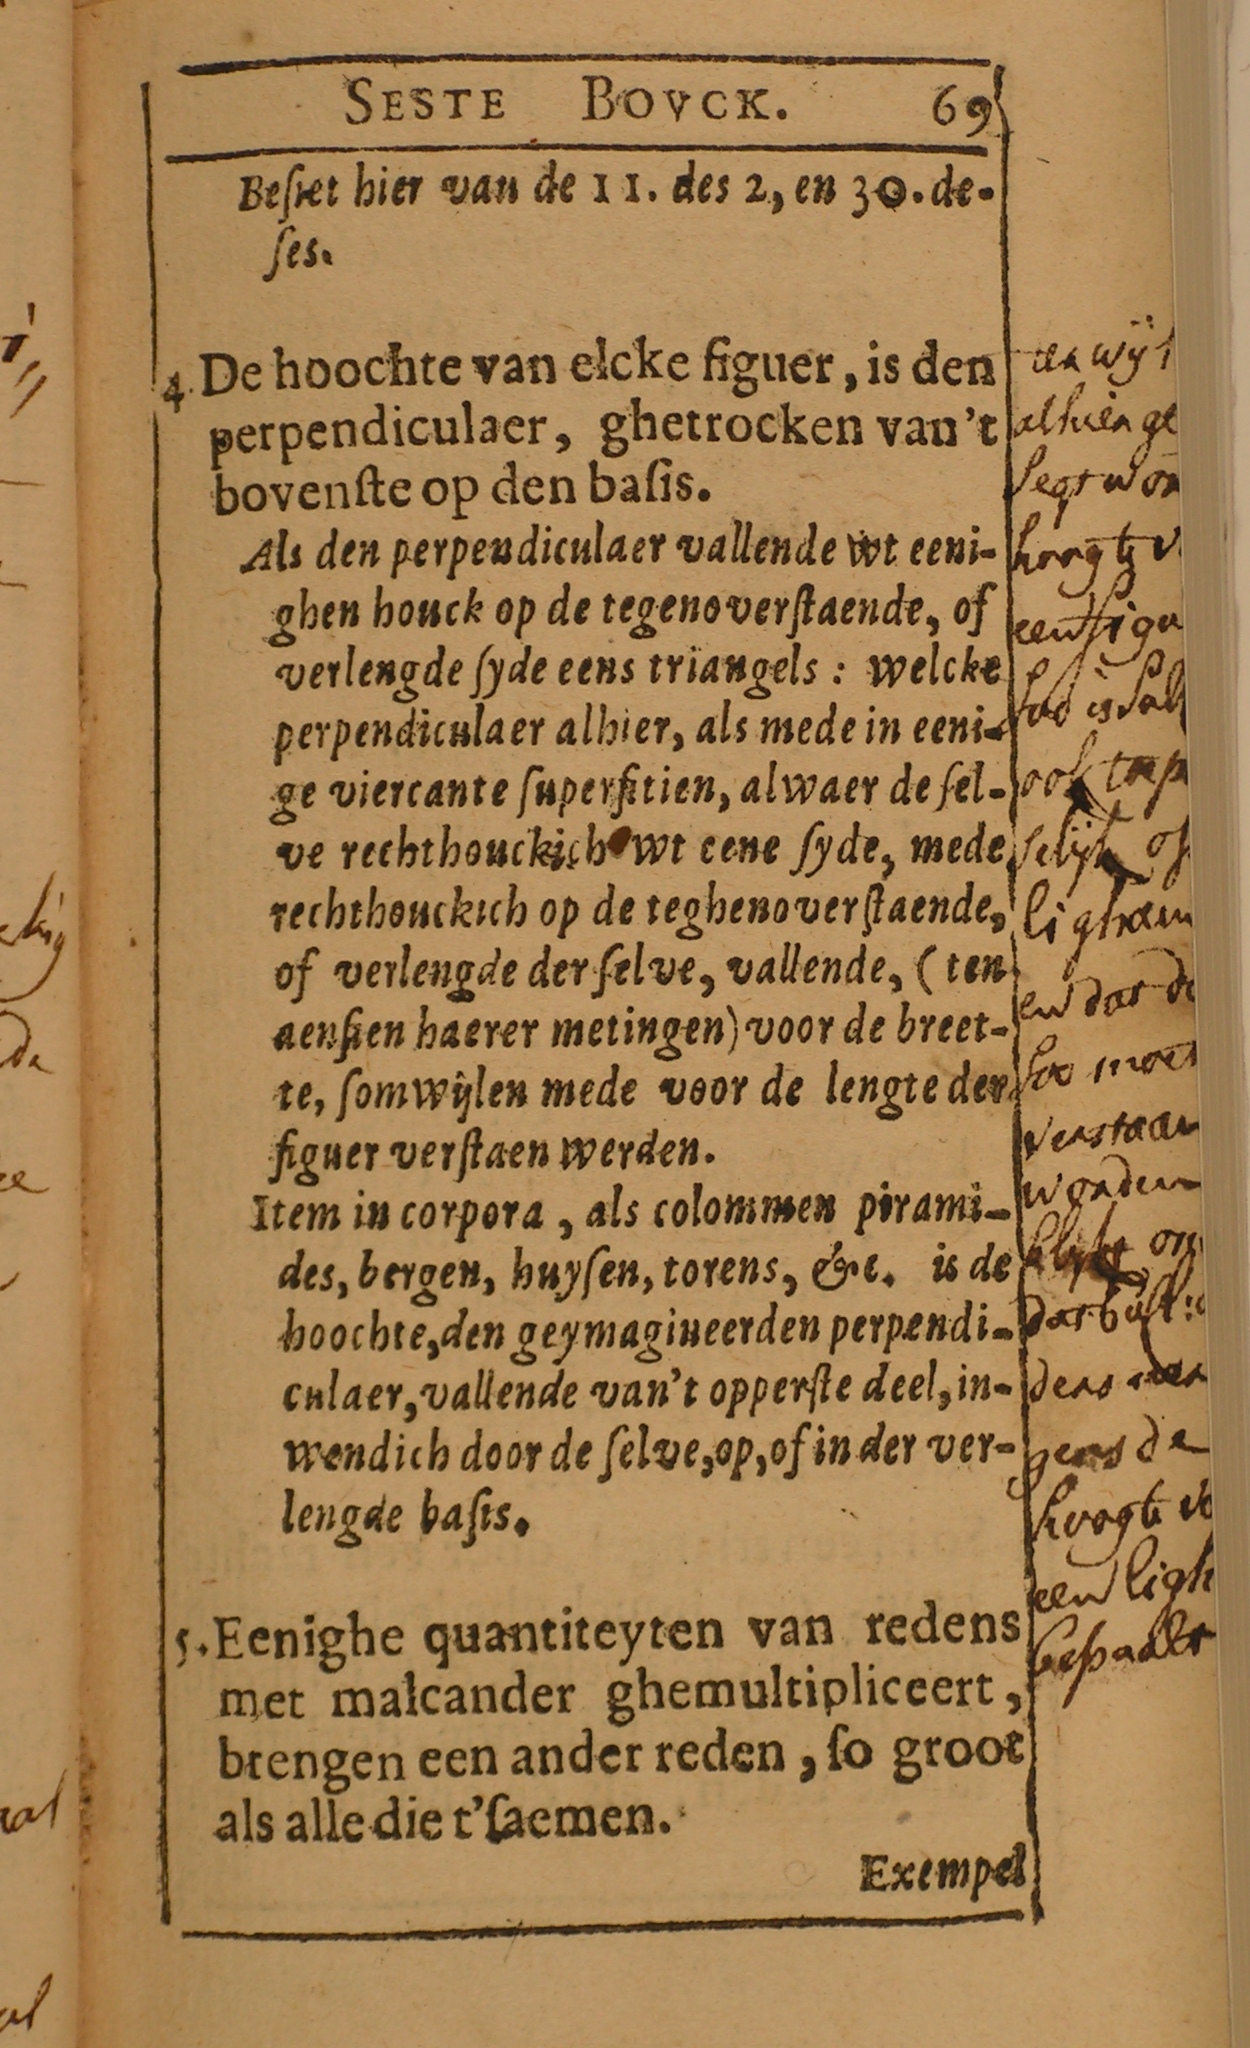 SESTE BOVCK. 69
Besiet hier van de 11. des 2, en 30. de-
ses.
4. De hoochte van elcke figuer, is den
perpendiculaer, ghetrocken van't
bovenste op den basis.
Als den perpendiculaer vallende wt eeni-
ghen houck op de tegenoverstaende, of
verlengde syde eens triangels: welcke
perpendiculaer alhier, als mede in eeni-
ge viercante superfitien, alwaer de sel-
ve rechthouckich wt eene syde, mede
rechthouckich op de teghenoverstaende,
of verlengde der selve, vallende, (ten
aensien haerer metingen) voor de breet-
te, somwijlen mede voor de lengte der
figuer verstaen werden.
Item in corpora, als colommen pirami-
des, bergen, huysen, torens, &c. is de
hoochte, den geymagineerden perpendi-
culaer, vallende van't opperste deel, in-
wendich door de selve, op, of in der ver-
lengde basis.
5. Eenighe quantiteyten van redens
met malcander ghemultipliceert,
brengen een ander reden, so groot
als alle die t'saemen.
Exempel
alhier ge
segt wor
hoogte v
een figu
soo is sal
ook toep
selijk op
lighaem
en dat de
soo moet
verstaan
worden
hoogte v
een ligh
bepaalt